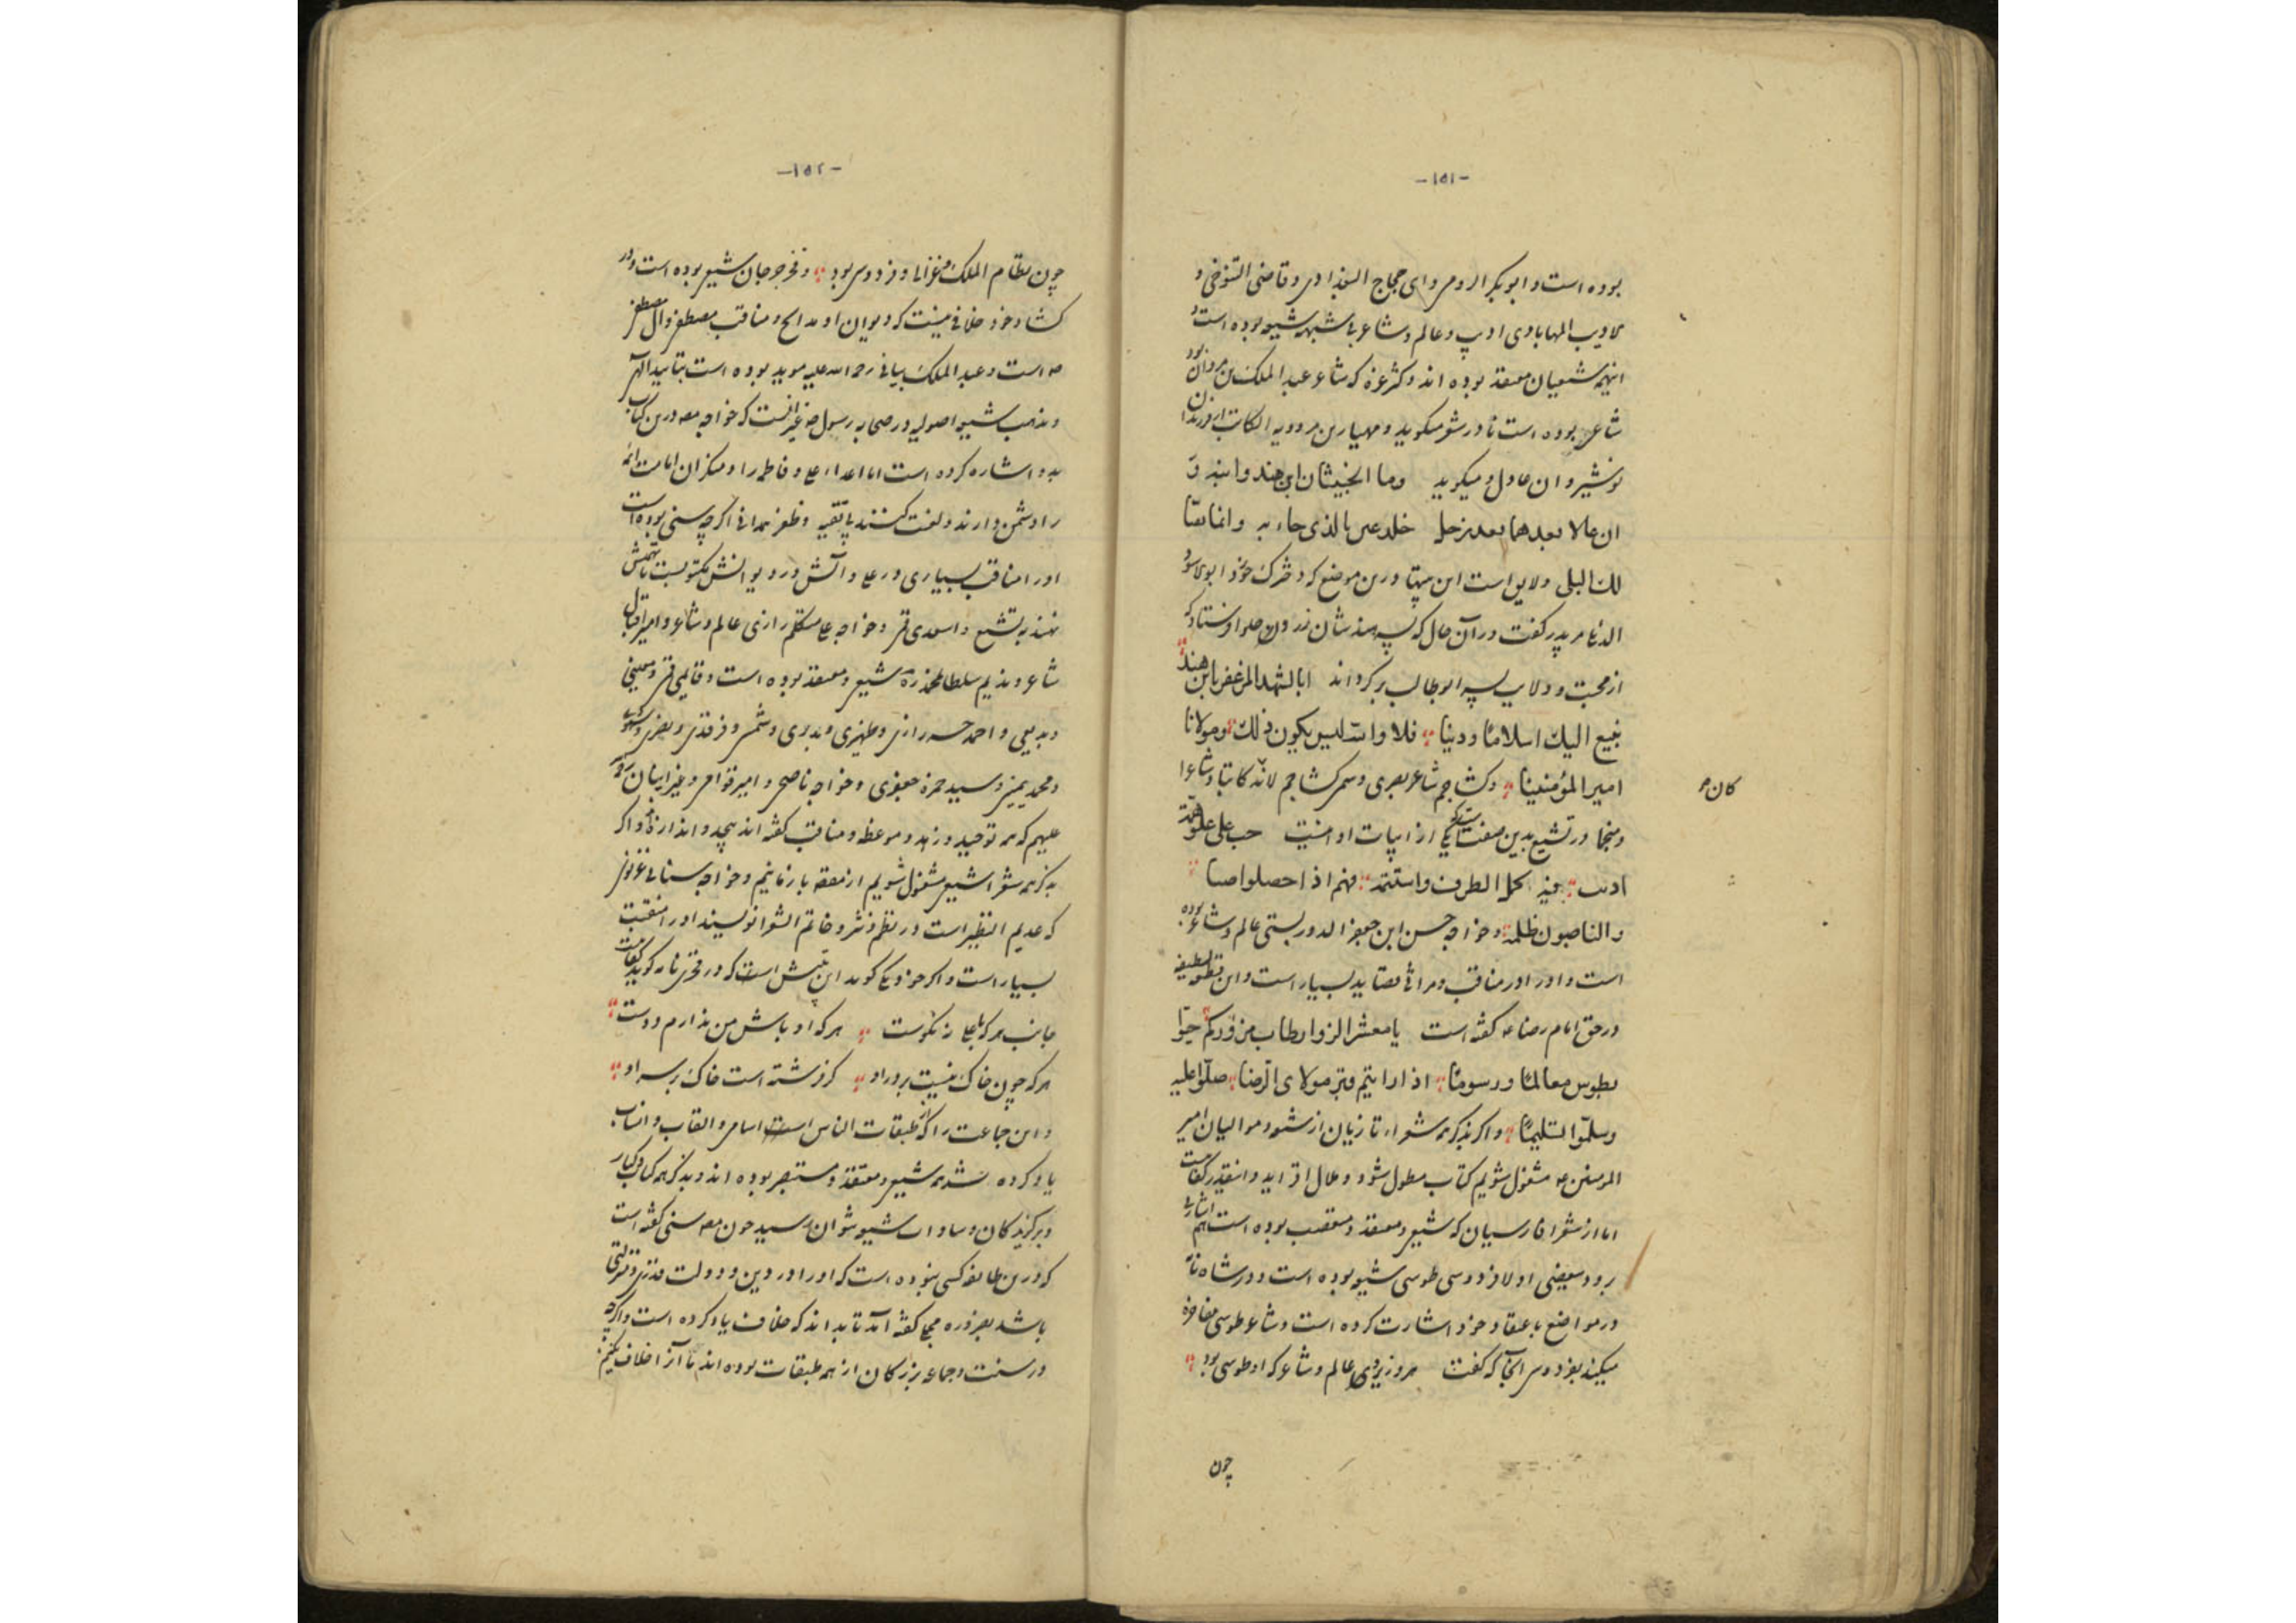 -۱۵۱-
بوده است و ابو بکر الرومی و ای حجاج البغدادی و قاضی التنوخی و
لادیب المهابادی ادیب و عالم و شاعر بی شبهه شیعه بوده است و
اینهمه شیعیان معتقد بوده اند و کثر عزه که شاعر عبد الملک بن مروان بود
شاعی بوده است تا در شعر میکوید و مهیار بن مردویه الکاتب از فرزندان
نوشیروان عادل و میکوید وما الخبیثان ابن هند وابنه
ان حالا بعدهما بعد بزحل خلد عن بالذی جاء به وانما
لک البلی و لایق است این بیتها درین موضع که دخترک خود ابو الاسود
الدئلی مر پدر کفت در آن حال که پسر هند شان زر و حلوا فرستاد که
از محبت و ولایت پسر ابو طالب بر کرداند ابا لشهد المزعفر یا ابن هند
نبیع الیک اسلاما و دینا فلا والله لیس یکون ذلک و مولانا
امیر المؤمنینا و کشاجم شاعر بصری و سمی کشاجم لانه کان کاتبا و شاعرا
و منجما در تشیع بدین صفت یکی از ابیات او اینست حب علی علو همة
ادب فیه کل الطرف و فهم اذا حصلوا
والناصبون ظلمة و خواجه حسن ابن جعفر الدوریستی عالم و شاعر بوده
است و او را در مناقب و مراثی قصاید بسیار است و این قطعه لطیفه
در حق امام رضا عه کفته است یا معشر الزوار طاب من زورکم حیوا
بطوس معالما و رسوما اذا رایتم قبر مولای الرضا صلوا علیه
وسلموا تسلیما و اکر بذکر همه شعراء تازیان از شیعه و موالیان امیر
المومنین عه مشغول شویم کتاب مطول شود و ملال افزاید و اینقدر کفایت
اما از شعرا فارسیان که شیعی و معتقد و متعصب بوده است هم اشارتی
برود ببعضی اولا فردوسی طوسی شیعه بوده است و در شاه نامه
در مواضع باعتقاد خود اشارت کرده است و شاعر طوسی مفاخره
میکند بفردوسی آنجا که کفت هر وزیری و عالم و شاعر که او طوسی بود
چون
کان
-۱۵۲-
چون نظام الملک و غزالی و فردوسی بود و فخر جرجان شیعی بوده است و در
کشاد خود خلافی نیست که دیوان او مدایح و مناقب مصطفی و آل مصطفی
عه است و عبد الملک بیانی رحمه الله علیه موید بوده است بتایید الهی
و مذهب شیعه اصولیه در صحابه رسول غیر انست که خواجه درین کتاب
بدو اشاره کرده است اما اعداء علی و فاطمه را و منکران امامت ائمه
را دشمن دارند و لعنت کنند بی تقیه و ظفر همدانی اکرچه سنی بوده است
او را مناقب بسیاری در علی و آلش در دیوانش مکتوبست تا تهمتش
نهند به تشیع و اسعدی قمی و خواجه علی متکلم رازی عالم و شاعر و امیر اقبال
شاعر و ندیم سلطان محمد شیعی و معتقد بوده است و قایمی قمی و معینی
و بدیعی و احمد رازی و ظهیری و بردی و شمسی و فرقدی و
و محمد یمینی و سید حمزه جعفری و خواجه ناصحی و امیر قوامی و غیر اینان رحمة
علیهم که همه توحید و زهد و موعظه و مناقب کفته اند بیحد و اندازه و اکر
بذکر همه شعرا شیعی مشغول شویم از مقصود باز مانیم و خواجه سنائی غزنوی
که عدیم النظیر است در نظم و نثر و خاتم الشعرا نویسند او را منقبت
بسیار است و اکر خود یکی کوید این بیتش است که در فخری نامه کوید کفایت
جانب هر که با علی نه نکوست هر که او باش من ندارم دوست
هر که چون خاک نیست بر در او کر فرشته است خاک بر سر او
و این جماعت را که طبقات الناس است اسامی و القاب و انساب
یاد کرده شد همه شیعی و معتقد و مستبصر بوده اند و بذکر همه کتاب کبار
و برکزیدکان و سادات شیعه نتوان رسید چون مصنف سنی کفته است
که درین طایفه کسی نبوده است که او را در دین و دولت قدری و منزلتی
باشد بضرورت کفته آمد تا بداند که خلاف یاد کرده است و اکرچه
در سنت و جماعه بزرکان از همه طبقات بوده اند ما آنرا خلاف نکنیم